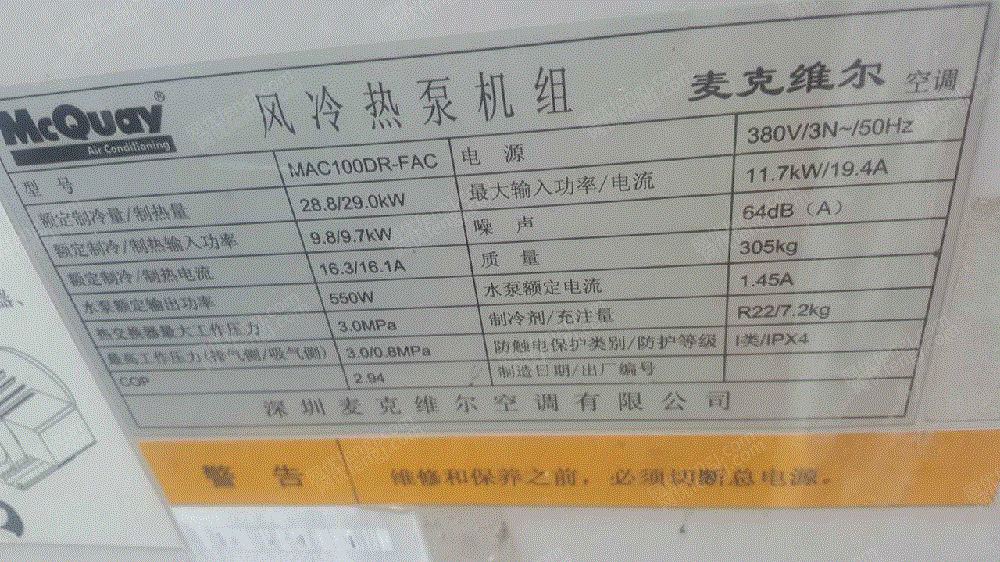 McQuay®
Air Conditioning
风冷热泵机组
麦克维尔 空调
型号 MAC100DR-FAC 电源 380V/3N~/50Hz
额定制冷量/制热量 28.8/29.0kW 最大输入功率/电流 11.7kW/19.4A
额定制冷/制热输入功率 9.8/9.7kW 噪声 64dB（A）
额定制冷/制热电流 16.3/16.1A 质量 305kg
水泵额定输出功率 550W 水泵额定电流 1.45A
热交换器最大工作压力 3.0MPa 制冷剂/充注量 R22/7.2kg
最高工作压力(排气侧/吸气侧) 3.0/0.8MPa 防触电保护类别/防护等级 I类/IPX4
COP 2.94 制造日期/出厂编号
深圳麦克维尔空调有限公司
警告 维修和保养之前，必须切断总电源。